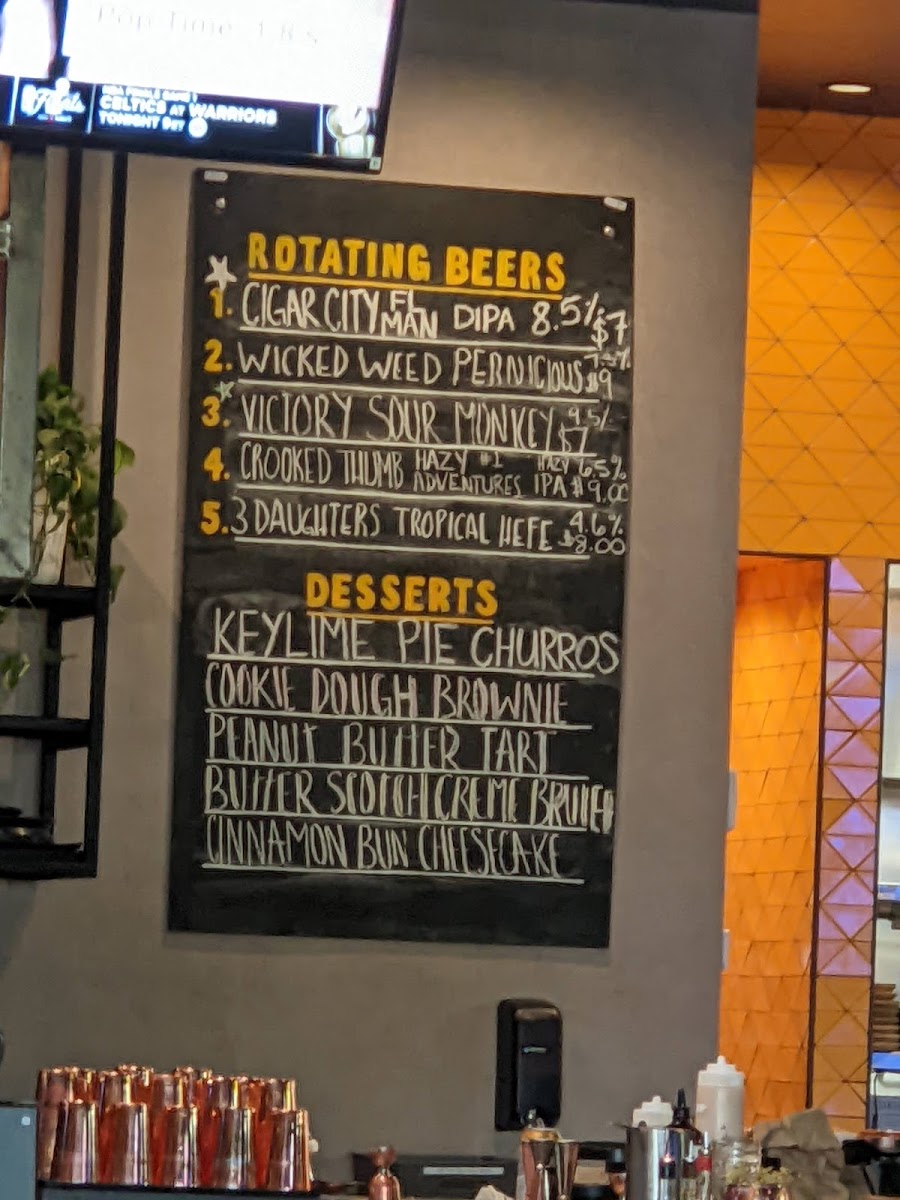 Pop Time: 1.8 s
Finals
NBA FINALS GAME 1
CELTICS AT WARRIORS
TONIGHT 9ET
ROTATING BEERS
1. CIGAR CITY FL MAN DIPA 8.5% $7
2. WICKED WEED PERNICIOUS $9
3. VICTORY SOUR MONKEY 9.5% $7
4. CROOKED THUMB HAZY #1 HAZY 6.5%
ADVENTURES IPA $9.00
5. 3 DAUGHTERS TROPICAL HEFE 4.6% $8.00
DESSERTS
KEYLIME PIE CHURROS
COOKIE DOUGH BROWNIE
PEANUT BUTTER TART
BUTTER SCOTCH CREME BRULEE
CINNAMON BUN CHEESECAKE